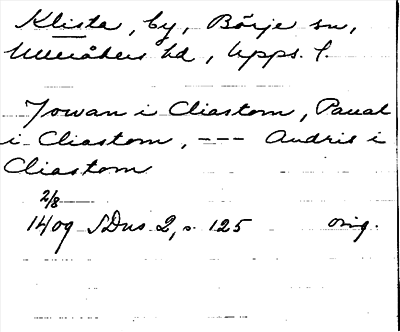 Klista, by, Börje sn,
Ulleråkers hd, Upps. l.
Jowan i Cliastom, Paual
i Cliastom, --- Andris i
Cliastom
2/8
1409 SDns 2, s. 125 orig.